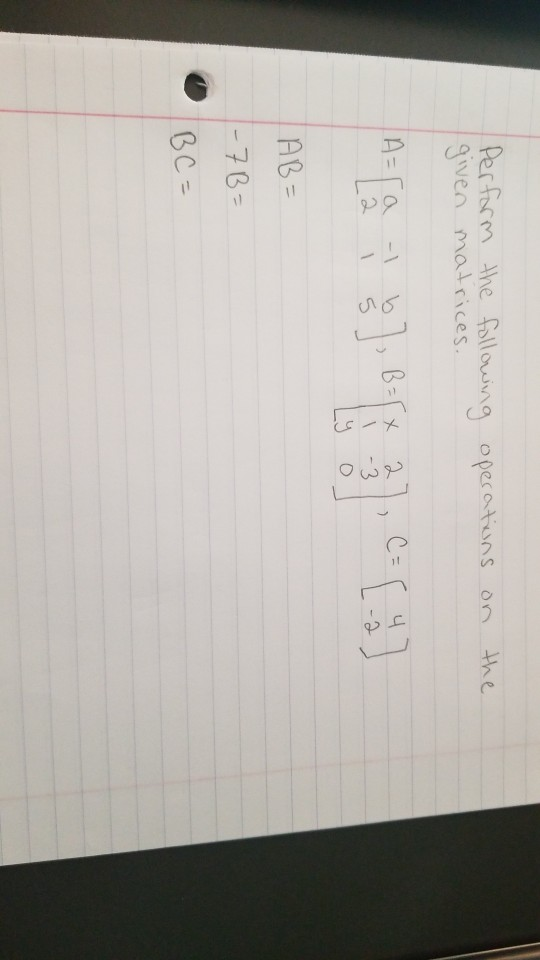 Perform the following operations on the
given matrices.
A = [a -1 b], B = [x 2], C = [4]
[2 1 5] [1 -3] [-2]
[y 0]
AB =
-7B =
BC =